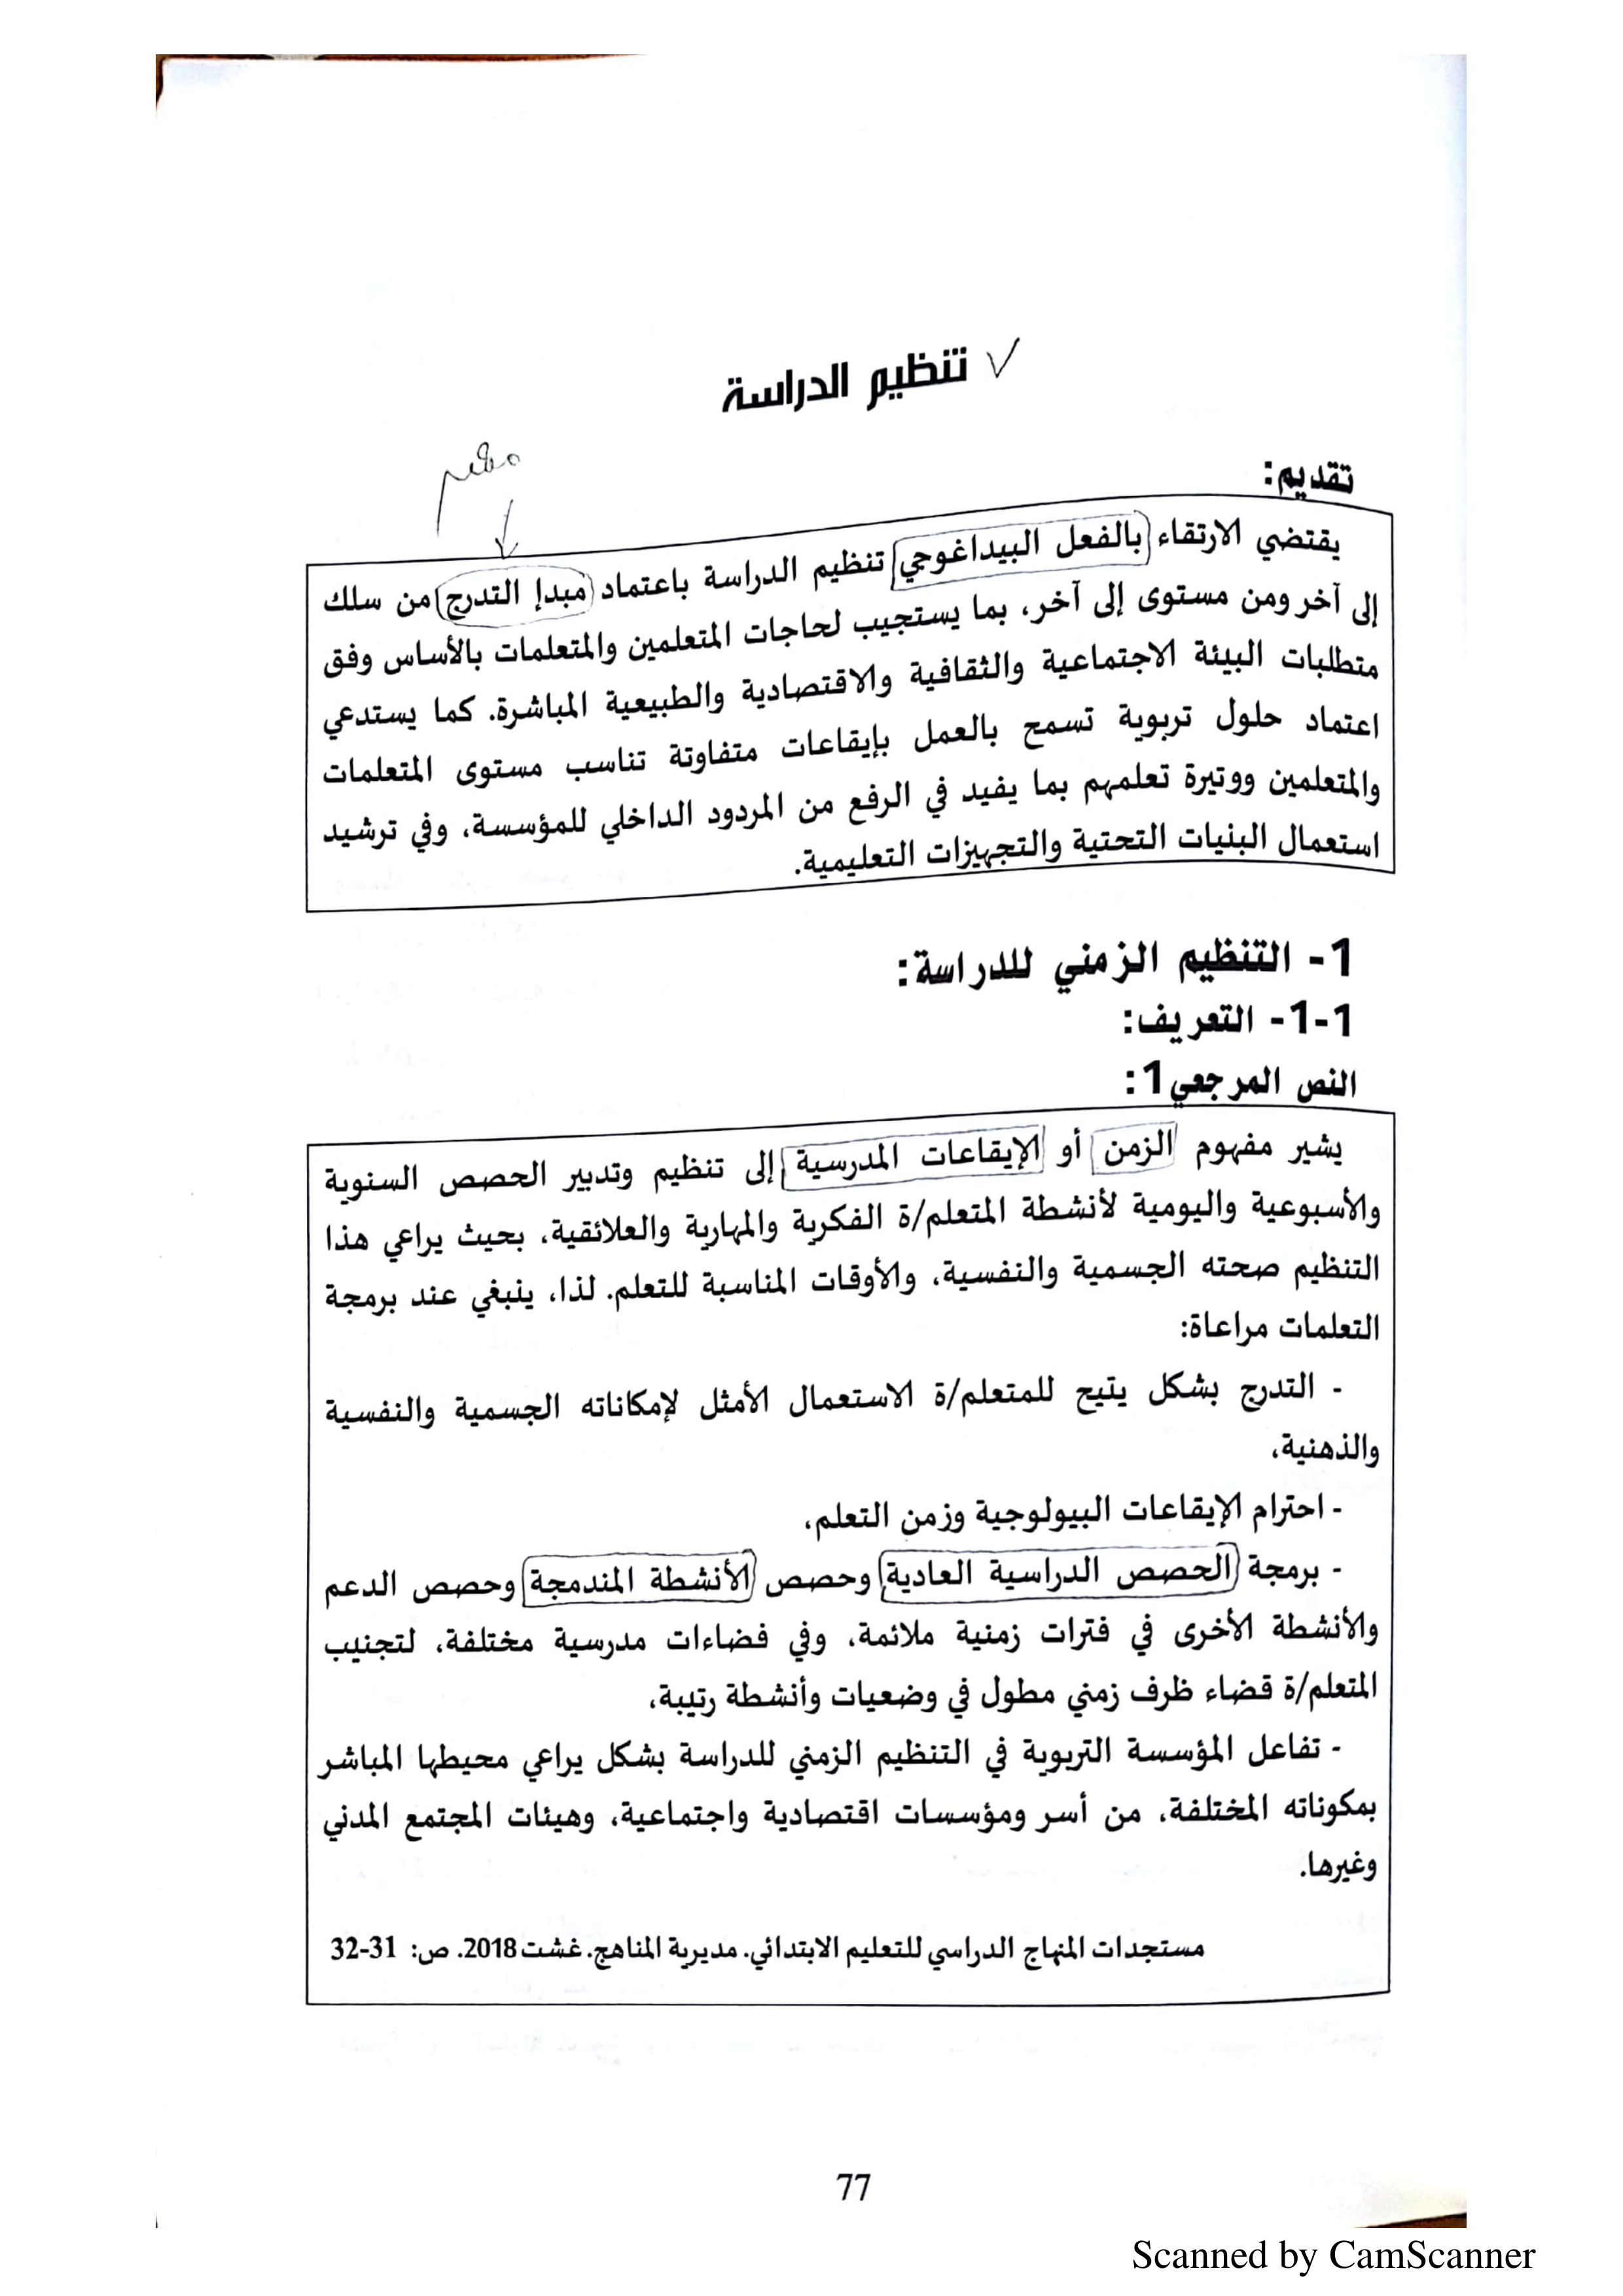 تنظيم الدراسة
تقديم:
مهم
يقتضي الارتقاء بالفعل البيداغوجي تنظيم الدراسة باعتماد مبدإ التدرج من سلك
إلى آخر ومن مستوى إلى آخر، بما يستجيب لحاجات المتعلمين والمتعلمات بالأساس وفق
متطلبات البيئة الاجتماعية والثقافية والاقتصادية والطبيعية المباشرة. كما يستدعي
اعتماد حلول تربوية تسمح بالعمل بإيقاعات متفاوتة تناسب مستوى المتعلمات
والمتعلمين ووتيرة تعلمهم بما يفيد في الرفع من المردود الداخلي للمؤسسة، وفي ترشيد
استعمال البنيات التحتية والتجهيزات التعليمية.
1- التنظيم الزمني للدراسة:
1-1- التعريف:
النص المرجعي1:
يشير مفهوم الزمن أو الإيقاعات المدرسية إلى تنظيم وتدبير الحصص السنوية
والأسبوعية واليومية لأنشطة المتعلم/ة الفكرية والمهارية والعلائقية، بحيث يراعي هذا
التنظيم صحته الجسمية والنفسية، والأوقات المناسبة للتعلم. لذا، ينبغي عند برمجة
التعلمات مراعاة:
- التدرج بشكل يتيح للمتعلم/ة الاستعمال الأمثل لإمكاناته الجسمية والنفسية
والذهنية،
- احترام الإيقاعات البيولوجية وزمن التعلم،
- برمجة الحصص الدراسية العادية وحصص الأنشطة المندمجة وحصص الدعم
والأنشطة الأخرى في فترات زمنية ملائمة، وفي فضاءات مدرسية مختلفة، لتجنيب
المتعلم/ة قضاء ظرف زمني مطول في وضعيات وأنشطة رتيبة،
- تفاعل المؤسسة التربوية في التنظيم الزمني للدراسة بشكل يراعي محيطها المباشر
بمكوناته المختلفة، من أسر ومؤسسات اقتصادية واجتماعية، وهيئات المجتمع المدني
وغيرها.
مستجدات المنهاج الدراسي للتعليم الابتدائي. مديرية المناهج. غشت 2018. ص: 31-32
77
Scanned by CamScanner